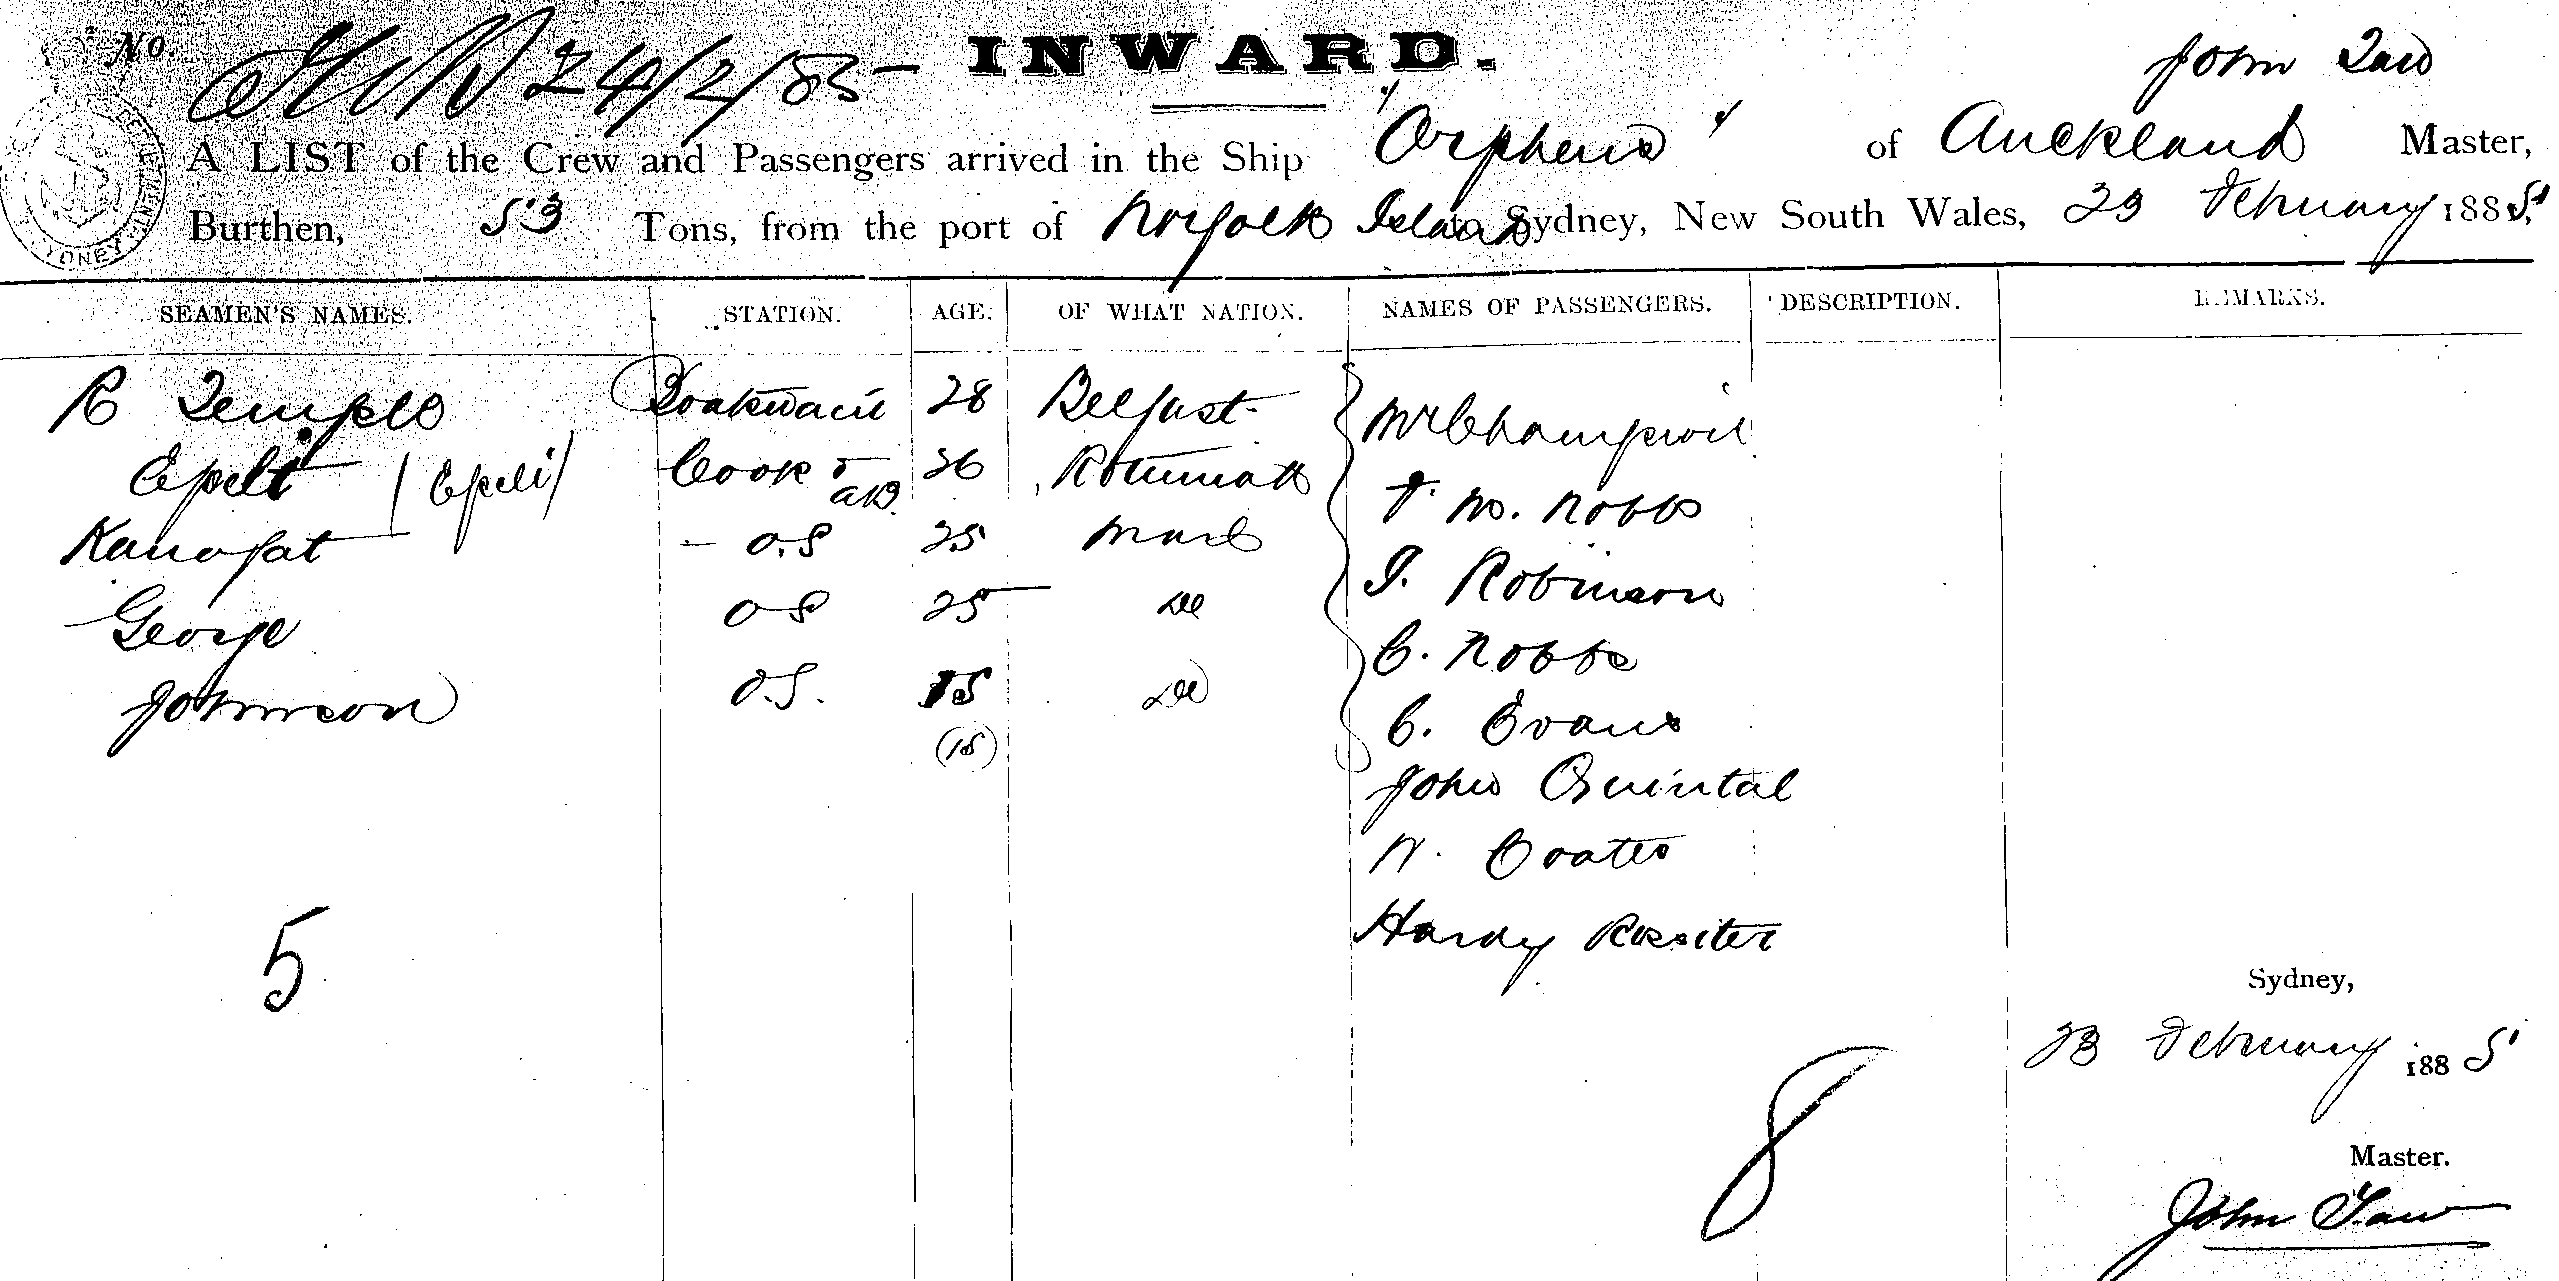 No. 24/2/85 - INWARD. John Taw
A LIST of the Crew and Passengers arrived in the Ship "Orpheus" of Auckland Master,
Burthen, 53 Tons, from the port of Norfolk Island to Sydney, New South Wales, 23 February 1885,
SEAMEN'S NAMES. STATION. AGE. OF WHAT NATION. NAMES OF PASSENGERS. DESCRIPTION. REMARKS.
R Temple Boatswain 28 Belfast Mr Champion
Epeli (Epeli) Cook & AB 26 Rotumah F. M. Nobbs
Kanofat - O.S 25 I. Robinson
George O S 25 Do C. Nobbs
Johnson O.S. 15 Do C. Evans
(15)
John Quintal
W. Coates
Hardy Rossiter
5
Sydney,
23 February 1885
8
Master.
John Taw